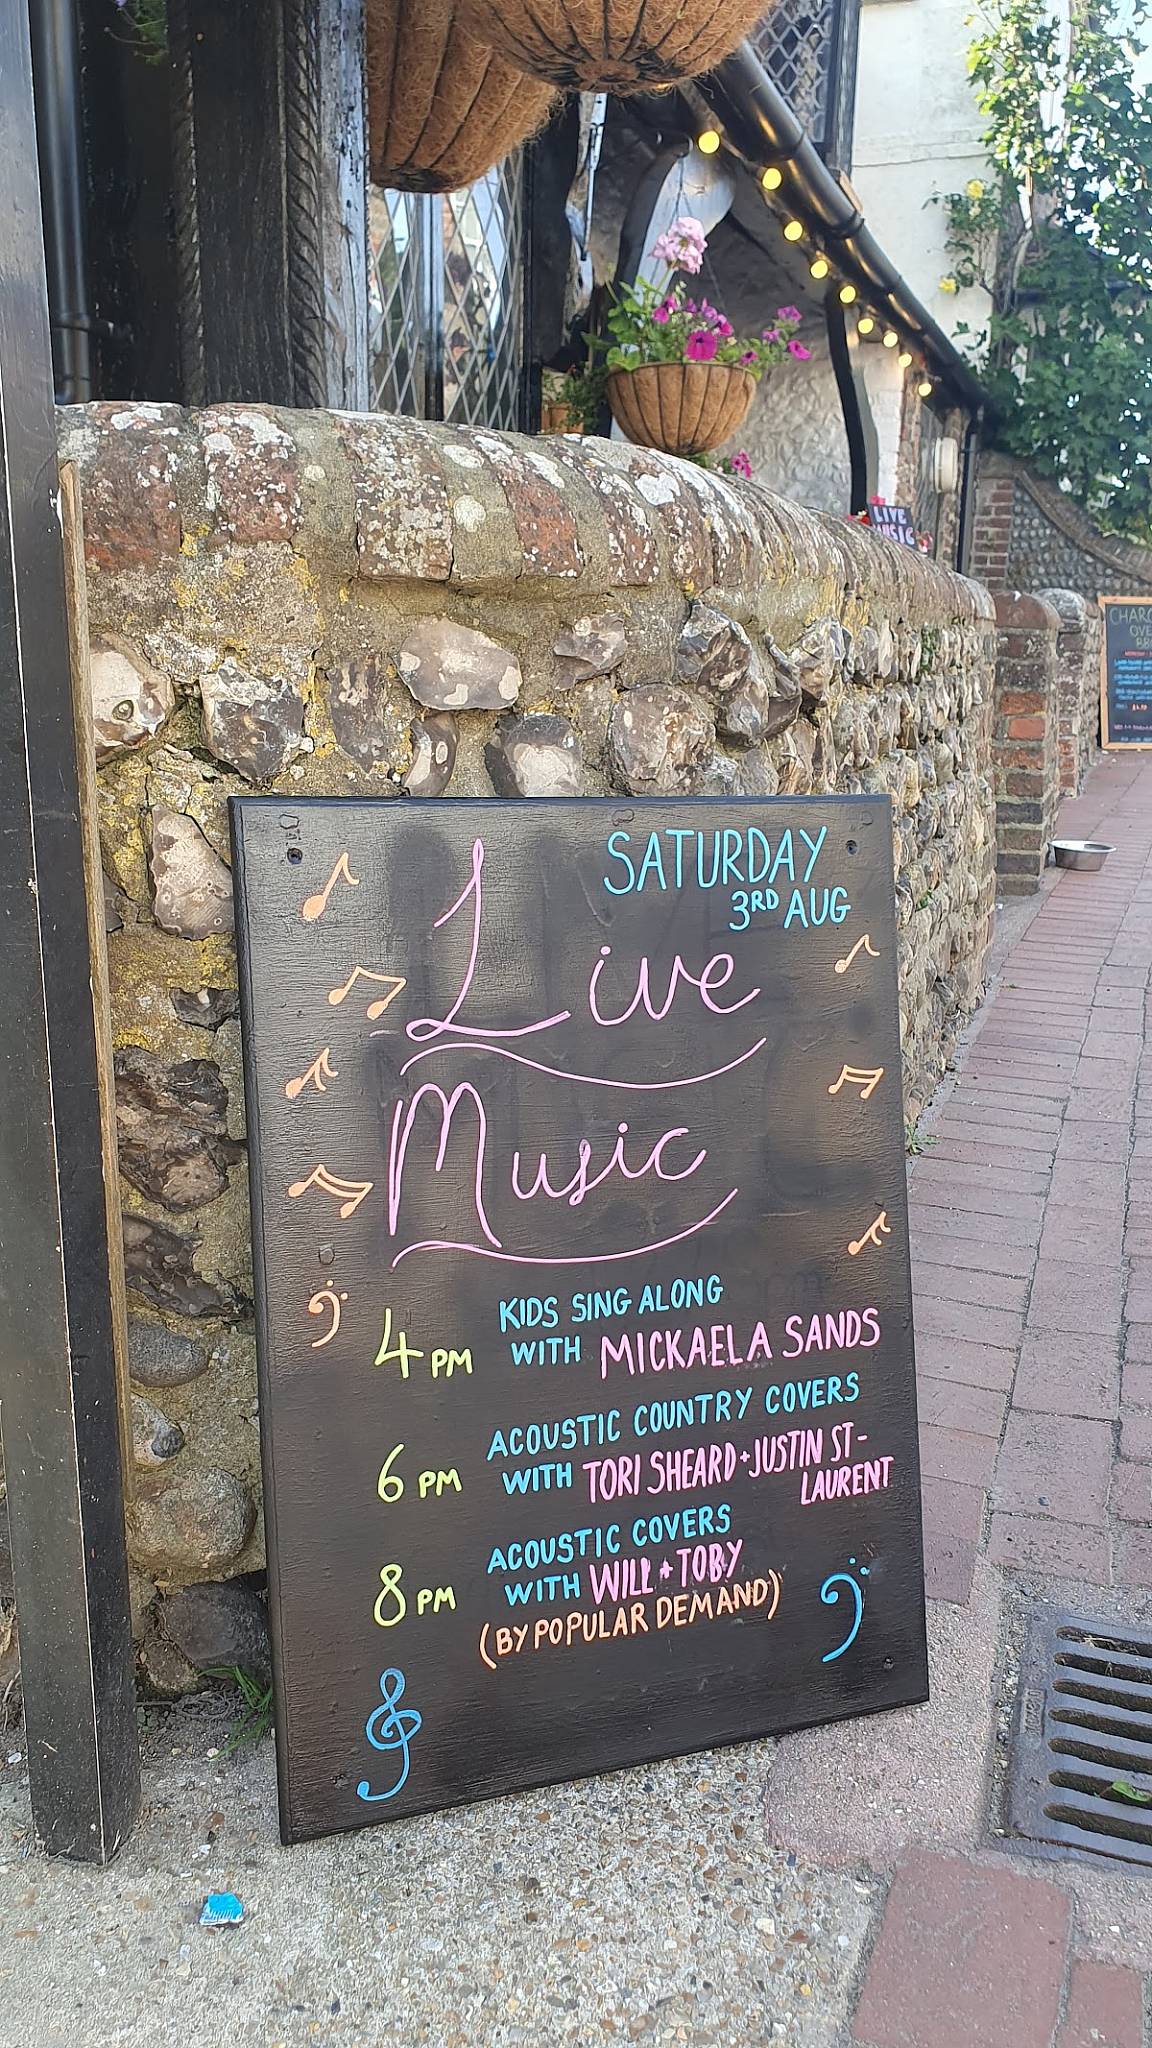 SATURDAY
3RD AUG
Live
Music
4PM
KIDS SING ALONG
WITH MICKAELA SANDS
6PM
ACOUSTIC COUNTRY COVERS
WITH TORI SHEARD + JUSTIN ST-
LAURENT
8PM
ACOUSTIC COVERS
WITH WILL + TOBY
(BY POPULAR DEMAND)
LIVE
MUSIC